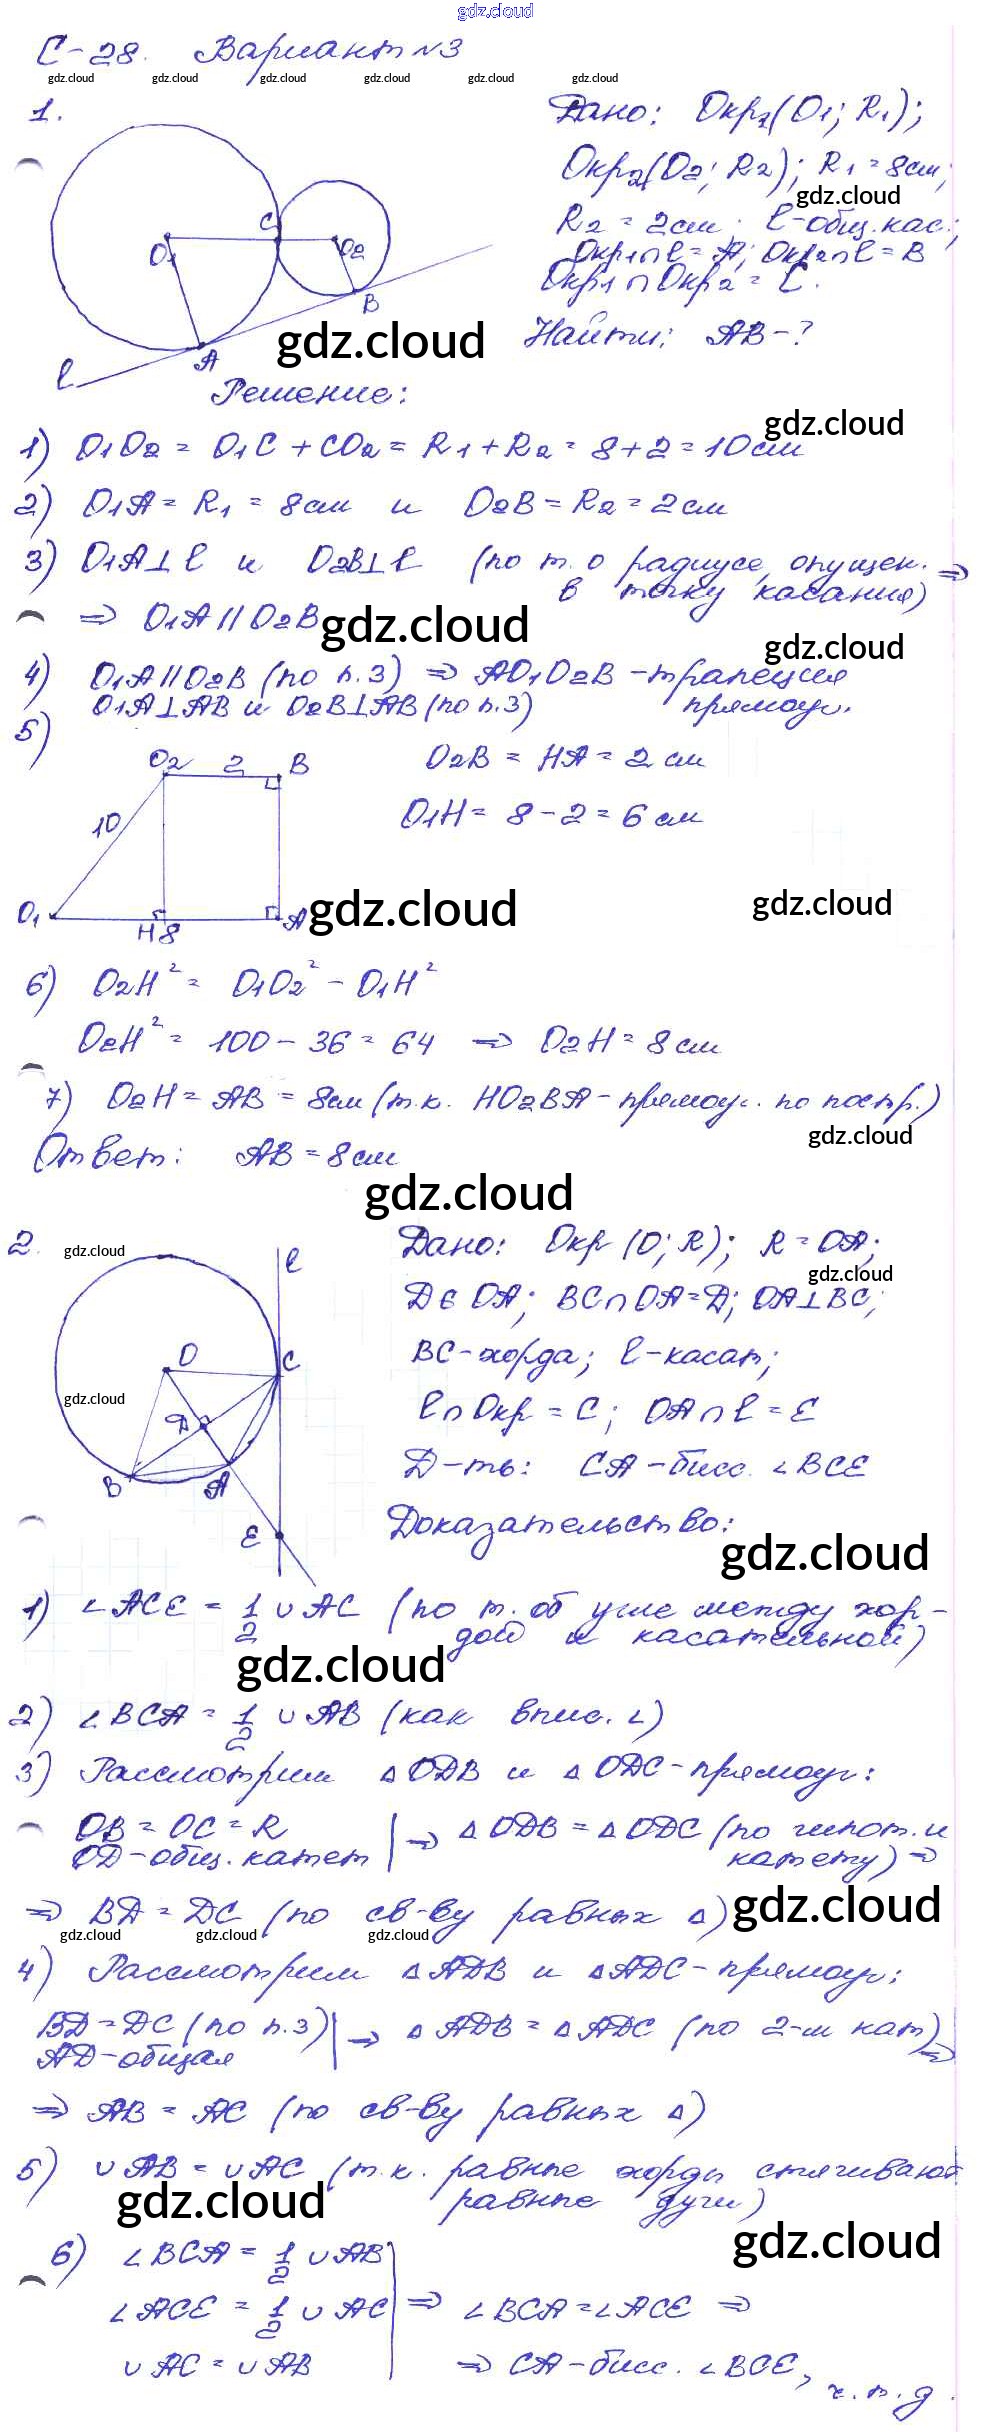 gdz.cloud
С-28. Вариант №3
gdz.cloud gdz.cloud gdz.cloud gdz.cloud gdz.cloud gdz.cloud
1.
Дано: Окр₁(O₁; R₁);
Окр₂(O₂; R₂); R₁=8см;
gdz.cloud
R₂=2см; l-общ. кас.;
Окр₁∩l=A; Окр₂∩l=B
Окр₁∩Окр₂=C.
Найти: AB-?
O₁ C O₂ B A l
gdz.cloud
Решение:
gdz.cloud
1) O₁O₂ = O₁C + CO₂ = R₁+R₂ = 8+2=10см
2) O₁A = R₁ = 8см и O₂B = R₂ = 2см
3) O₁A⊥l и O₂B⊥l (по т. о радиусе, опущен. ⇒
в точку касания)
⇒ O₁A // O₂B
gdz.cloud
gdz.cloud
4) O₁A // O₂B (по п.3) ⇒ AO₁O₂B - трапеция
O₁A⊥AB и O₂B⊥AB (по п.3) прямоуг.
5)
O₂ 2 B
O₂B = HA = 2см
10
O₁H = 8-2=6см
O₁ H 8 A
gdz.cloud
gdz.cloud
6) O₂H² = O₁O₂² - O₁H²
O₂H² = 100-36=64 ⇒ O₂H=8см
7) O₂H = AB = 8см (т.к. HO₂BA-прямоуг. по постр.)
gdz.cloud
Ответ: AB=8см
gdz.cloud
2.
gdz.cloud
Дано: Окр(O; R); R=OA;
gdz.cloud
D∈OA; BC∩OA=D; OA⊥BC;
BC-хорда; l-касат;
l∩Окр=C; OA∩l=E
Д-ть: CA-бисс. ∠BCE
l O C D B A E
gdz.cloud
Доказательство:
gdz.cloud
1) ∠ACE = 1/2 ∪AC (по т. об угле между хор-
дой и касательной)
gdz.cloud
2) ∠BCA = 1/2 ∪AB (как впис. ∠)
3) Рассмотрим △ODB и △ODC-прямоуг:
OB = OC = R | ⇒ △ODB = △ODC (по гипот. и
OD-общ. катет катету) ⇒
gdz.cloud
⇒ BD = DC (по св-ву равных △)
gdz.cloud gdz.cloud gdz.cloud
4) Рассмотрим △ADB и △ADC-прямоуг:
BD=DC (по п.3) | ⇒ △ADB = △ADC (по 2-м кат) ⇒
AD-общая
⇒ AB = AC (по св-ву равных △)
5) ∪AB = ∪AC (т.к. равные хорды стягивают
равные дуги)
gdz.cloud
gdz.cloud
6) ∠BCA = 1/2 ∪AB
∠ACE = 1/2 ∪AC ⇒ ∠BCA=∠ACE ⇒
∪AC = ∪AB ⇒ CA-бисс. ∠BCE,
ч.т.д.